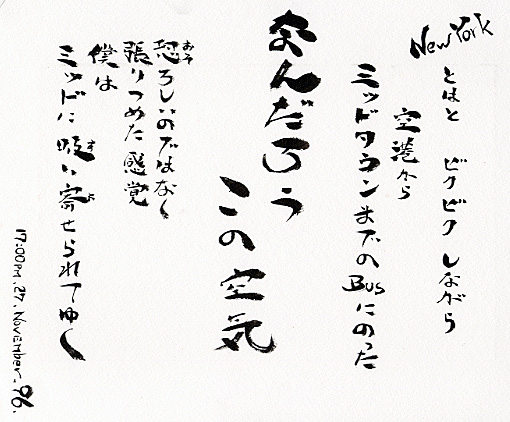 New York
とはと ビクビクしながら
空港から
ミッドタウンまでのBusにのった
なんだろう
この空気
恐ろしいのではなく
おそ
張りつめた感覚
僕は
ミッドに吸い寄せられてゆく
す よ
17:00PM. 27. November. 96.